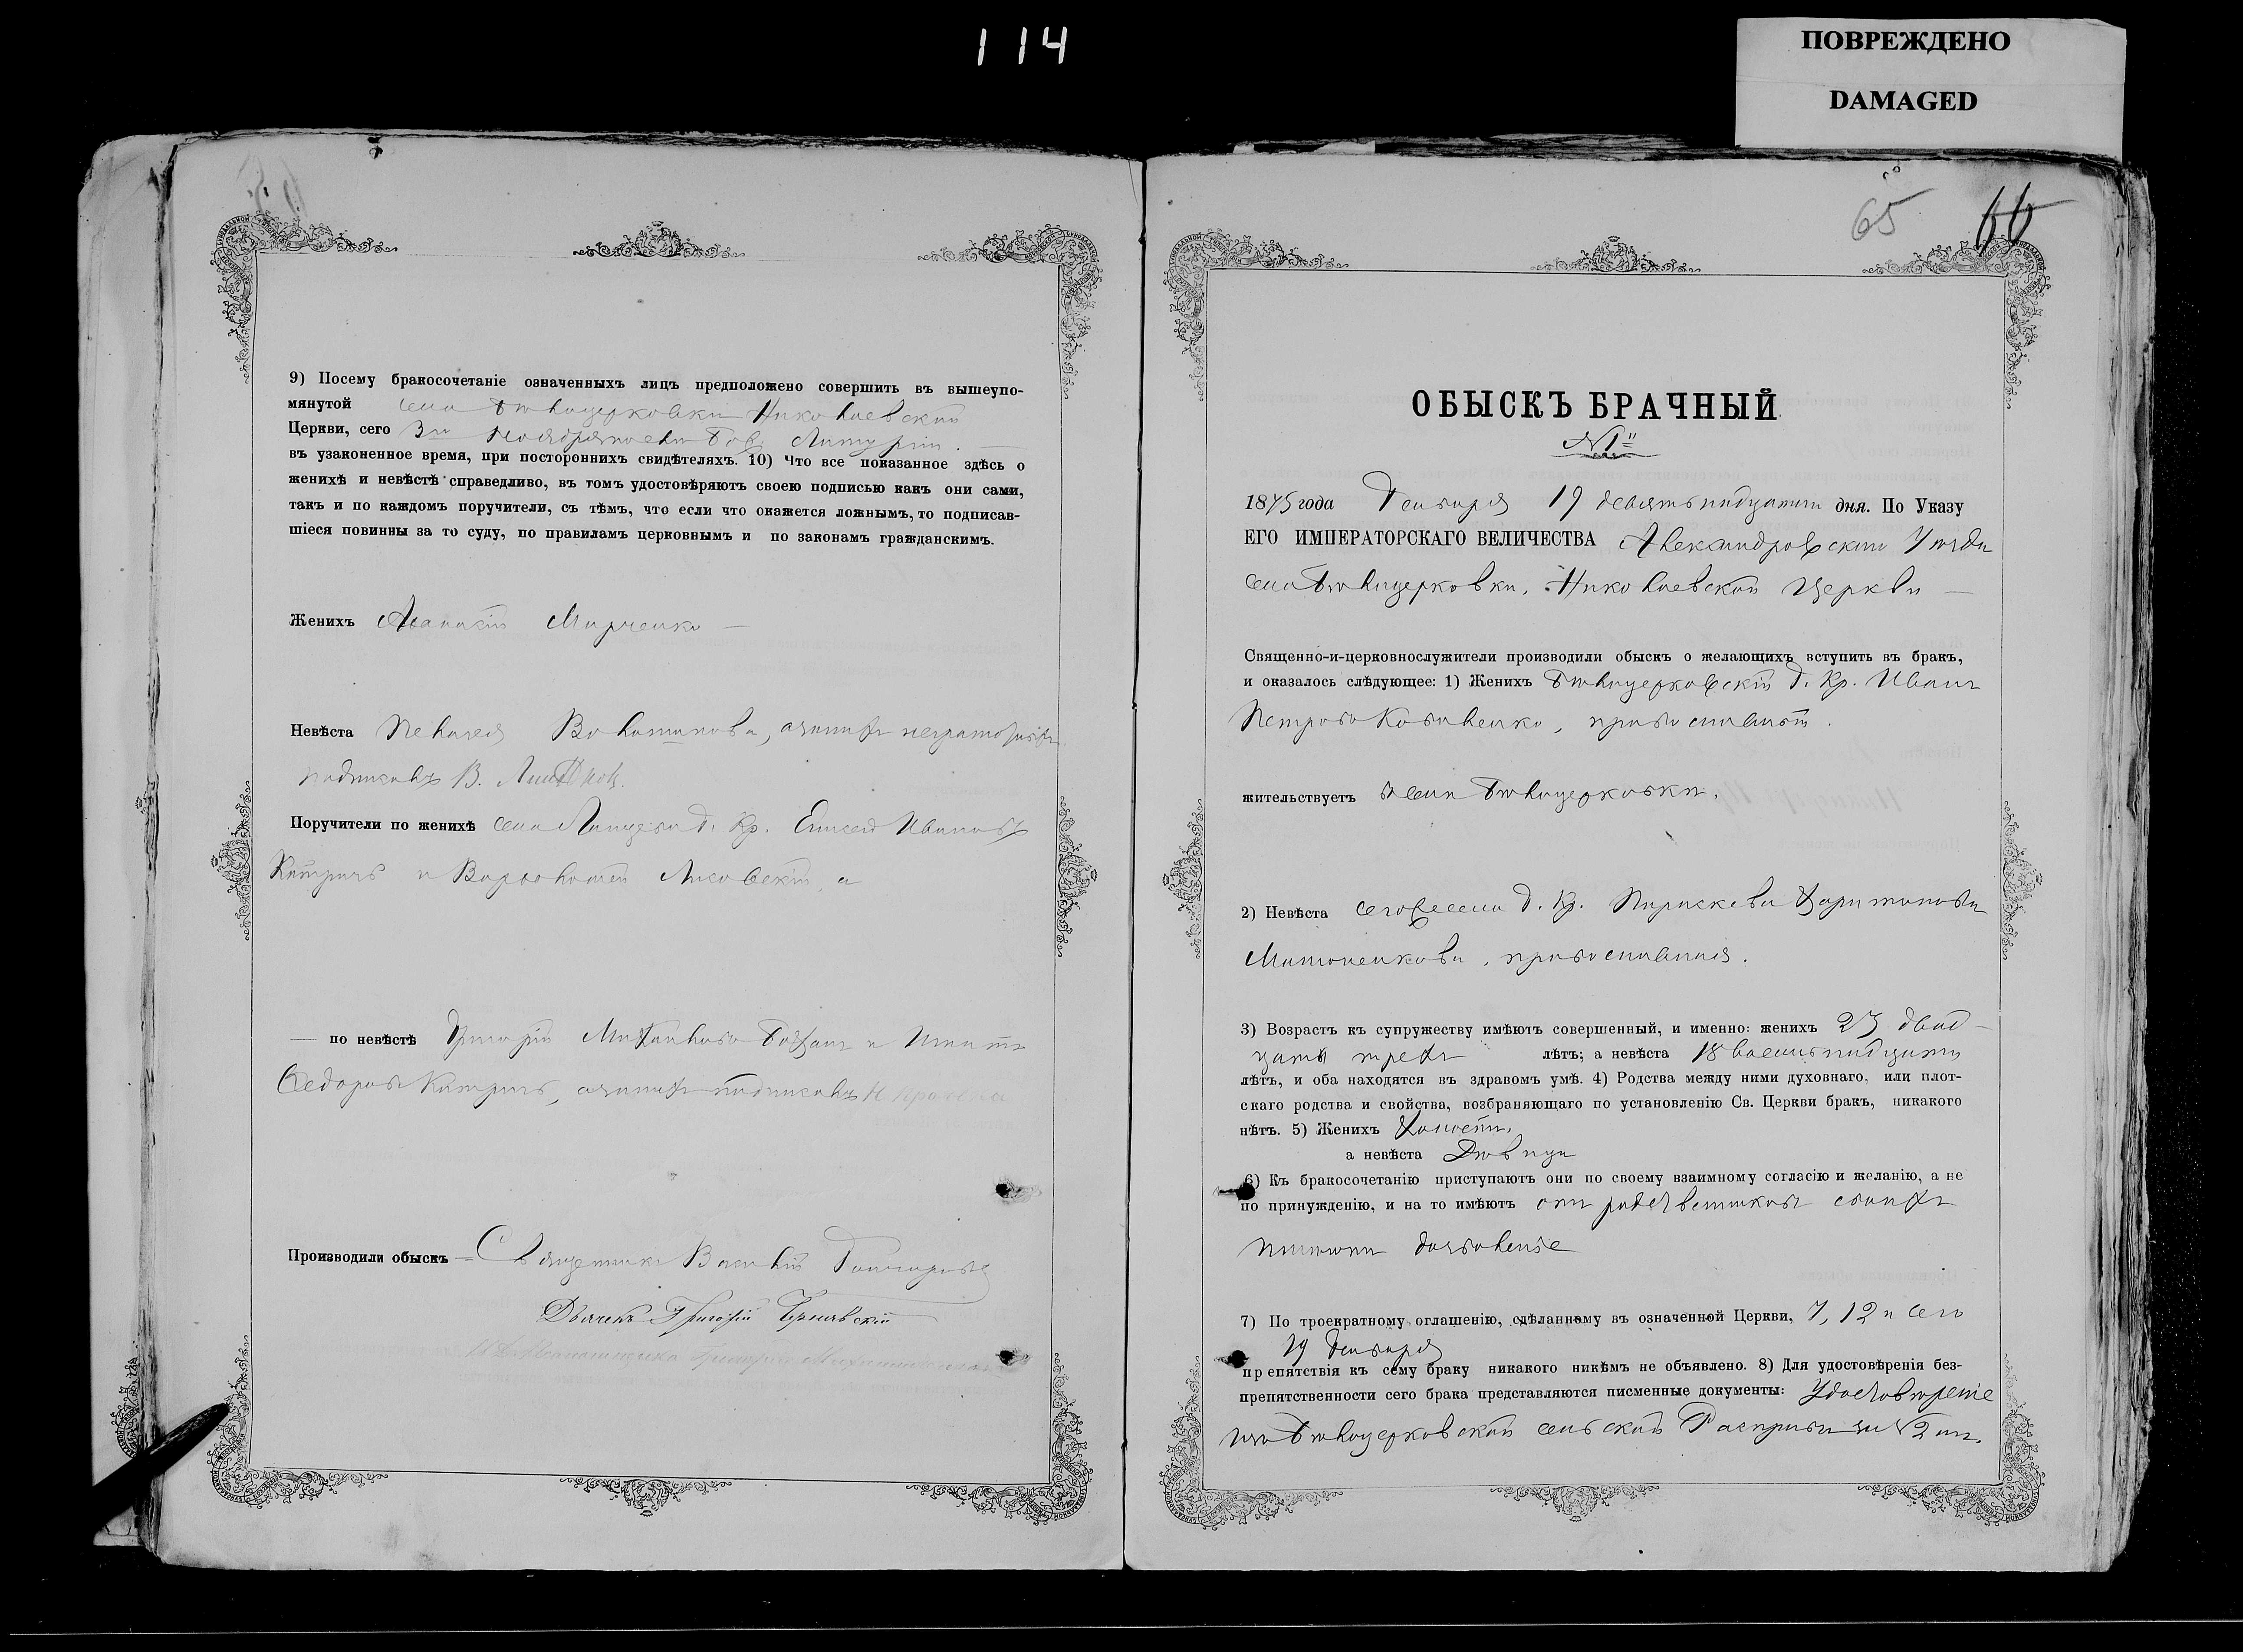 114
ПОВРЕЖДЕНО
DAMAGED
9) Посему бракосочетаніе означенныхъ лицъ предположено совершить въ вышеупо-
мянутой села Бѣлоцерковки Николаевской
Церкви, сего 3го Ноября после Бож. Литургіи.
въ узаконенное время, при постороннихъ свидѣтеляхъ. 10) Что все показанное здѣсь о
женихѣ и невѣстѣ справедливо, въ томъ удостовѣряютъ своею подписью какъ они сами,
такъ и по каждомъ поручители, съ тѣмъ, что если что окажется ложнымъ, то подписав-
шіеся повинны за то суду, по правиламъ церковнымъ и по законамъ гражданскимъ.
Женихъ Марченко
Невѣста Пелагея а за нихъ неграмотныхъ
подписалъ В.
Поручители по женихѣ села д. кр. Елисей Ивановъ
и Варфоломей Лисовскій, а
по невѣстѣ Григорій Михайловъ и Игнатъ
Ѳедоровъ а за нихъ подписалъ
Производили обыскъ Священникъ Василій Гончаровъ
Дьячекъ Григорій
65 66
ОБЫСКЪ БРАЧНЫЙ
№ 1"
1875 года Января 19 девятьнадцатаго дня. По Указу
ЕГО ИМПЕРАТОРСКАГО ВЕЛИЧЕСТВА Александровскаго Уѣзда
села Бѣлоцерковки, Николаевской Церкви
Священно-и-церковнослужители производили обыскъ о желающихъ вступить въ бракъ,
и оказалось слѣдующее: 1) Женихъ Бѣлоцерковскій д. кр. Иванъ
Петровъ Коваленко, православный.
жительствуетъ въ селѣ Бѣлоцерковкѣ.
2) Невѣста сего села д. кр. Параскева Харитонова
православная.
3) Возрастъ къ супружеству имѣютъ совершенный, и именно: женихъ 23 двад-
цать трехъ лѣтъ; а невѣста 18 восемьнадцати
лѣтъ, и оба находятся въ здравомъ умѣ. 4) Родства между ними духовнаго, или плот-
скаго родства и свойства, возбраняющаго по установленію Св. Церкви бракъ, никакого
нѣтъ. 5) Женихъ холостъ,
а невѣста Дѣвица
6) Къ бракосочетанію приступаютъ они по своему взаимному согласію и желанію, а не
по принужденію, и на то имѣютъ отъ родственниковъ своихъ
дозволеніе
7) По троекратному оглашенію, сдѣланному въ означенной Церкви, 7, 12 и сего
19 Января
препятствія къ сему браку никакого никѣмъ не объявлено. 8) Для удостовѣренія без-
препятственности сего брака представляются писменные документы: Удостовѣреніе
изъ Бѣлоцерковской сельской Расправы за № 2 мъ.